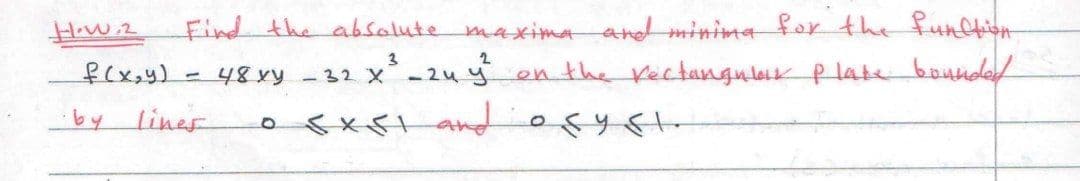 H.W.2 Find the absolute maxima and minima for the function
f(x,y) = 48xy - 32x³ - 24y² on the rectangular plate bounded
by lines 0 ≤ x ≤ 1 and 0 ≤ y ≤ 1.